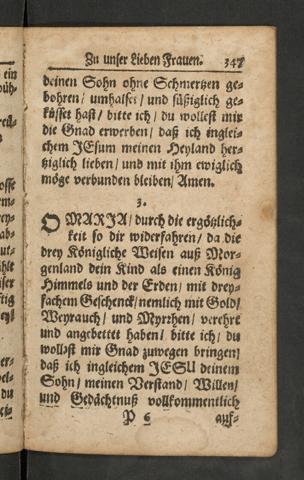 Zu unser Lieben Frauen. 347
deinen Sohn ohne Schmertzen ge-
bohren/ umhalset/ und süßiglich ge-
küsset hast/ bitte ich/ du wollest mir
die Gnad erwerben/ daß ich inglei-
chem JEsum meinen Heyland her-
tziglich lieben/ und mit ihm ewiglich
möge verbunden bleiben/ Amen.
3.
O MARIA/ durch die ergötzlich-
keit so dir widerfahren/ da die
drey Königliche Weisen auß Mor-
genland dein Kind als einen König
Himmels und der Erden/ mit drey-
fachem Geschenck/ nemlich mit Gold/
Weyrauch/ und Myrrhen/ verehrt
und angebettet haben/ bitte ich/ du
wollest mir Gnad zuwegen bringen/
daß ich ingleichem JESU deinem
Sohn/ meinen Verstand/ Willen/
und Gedächtnuß vollkommentlich
P 6 auf-